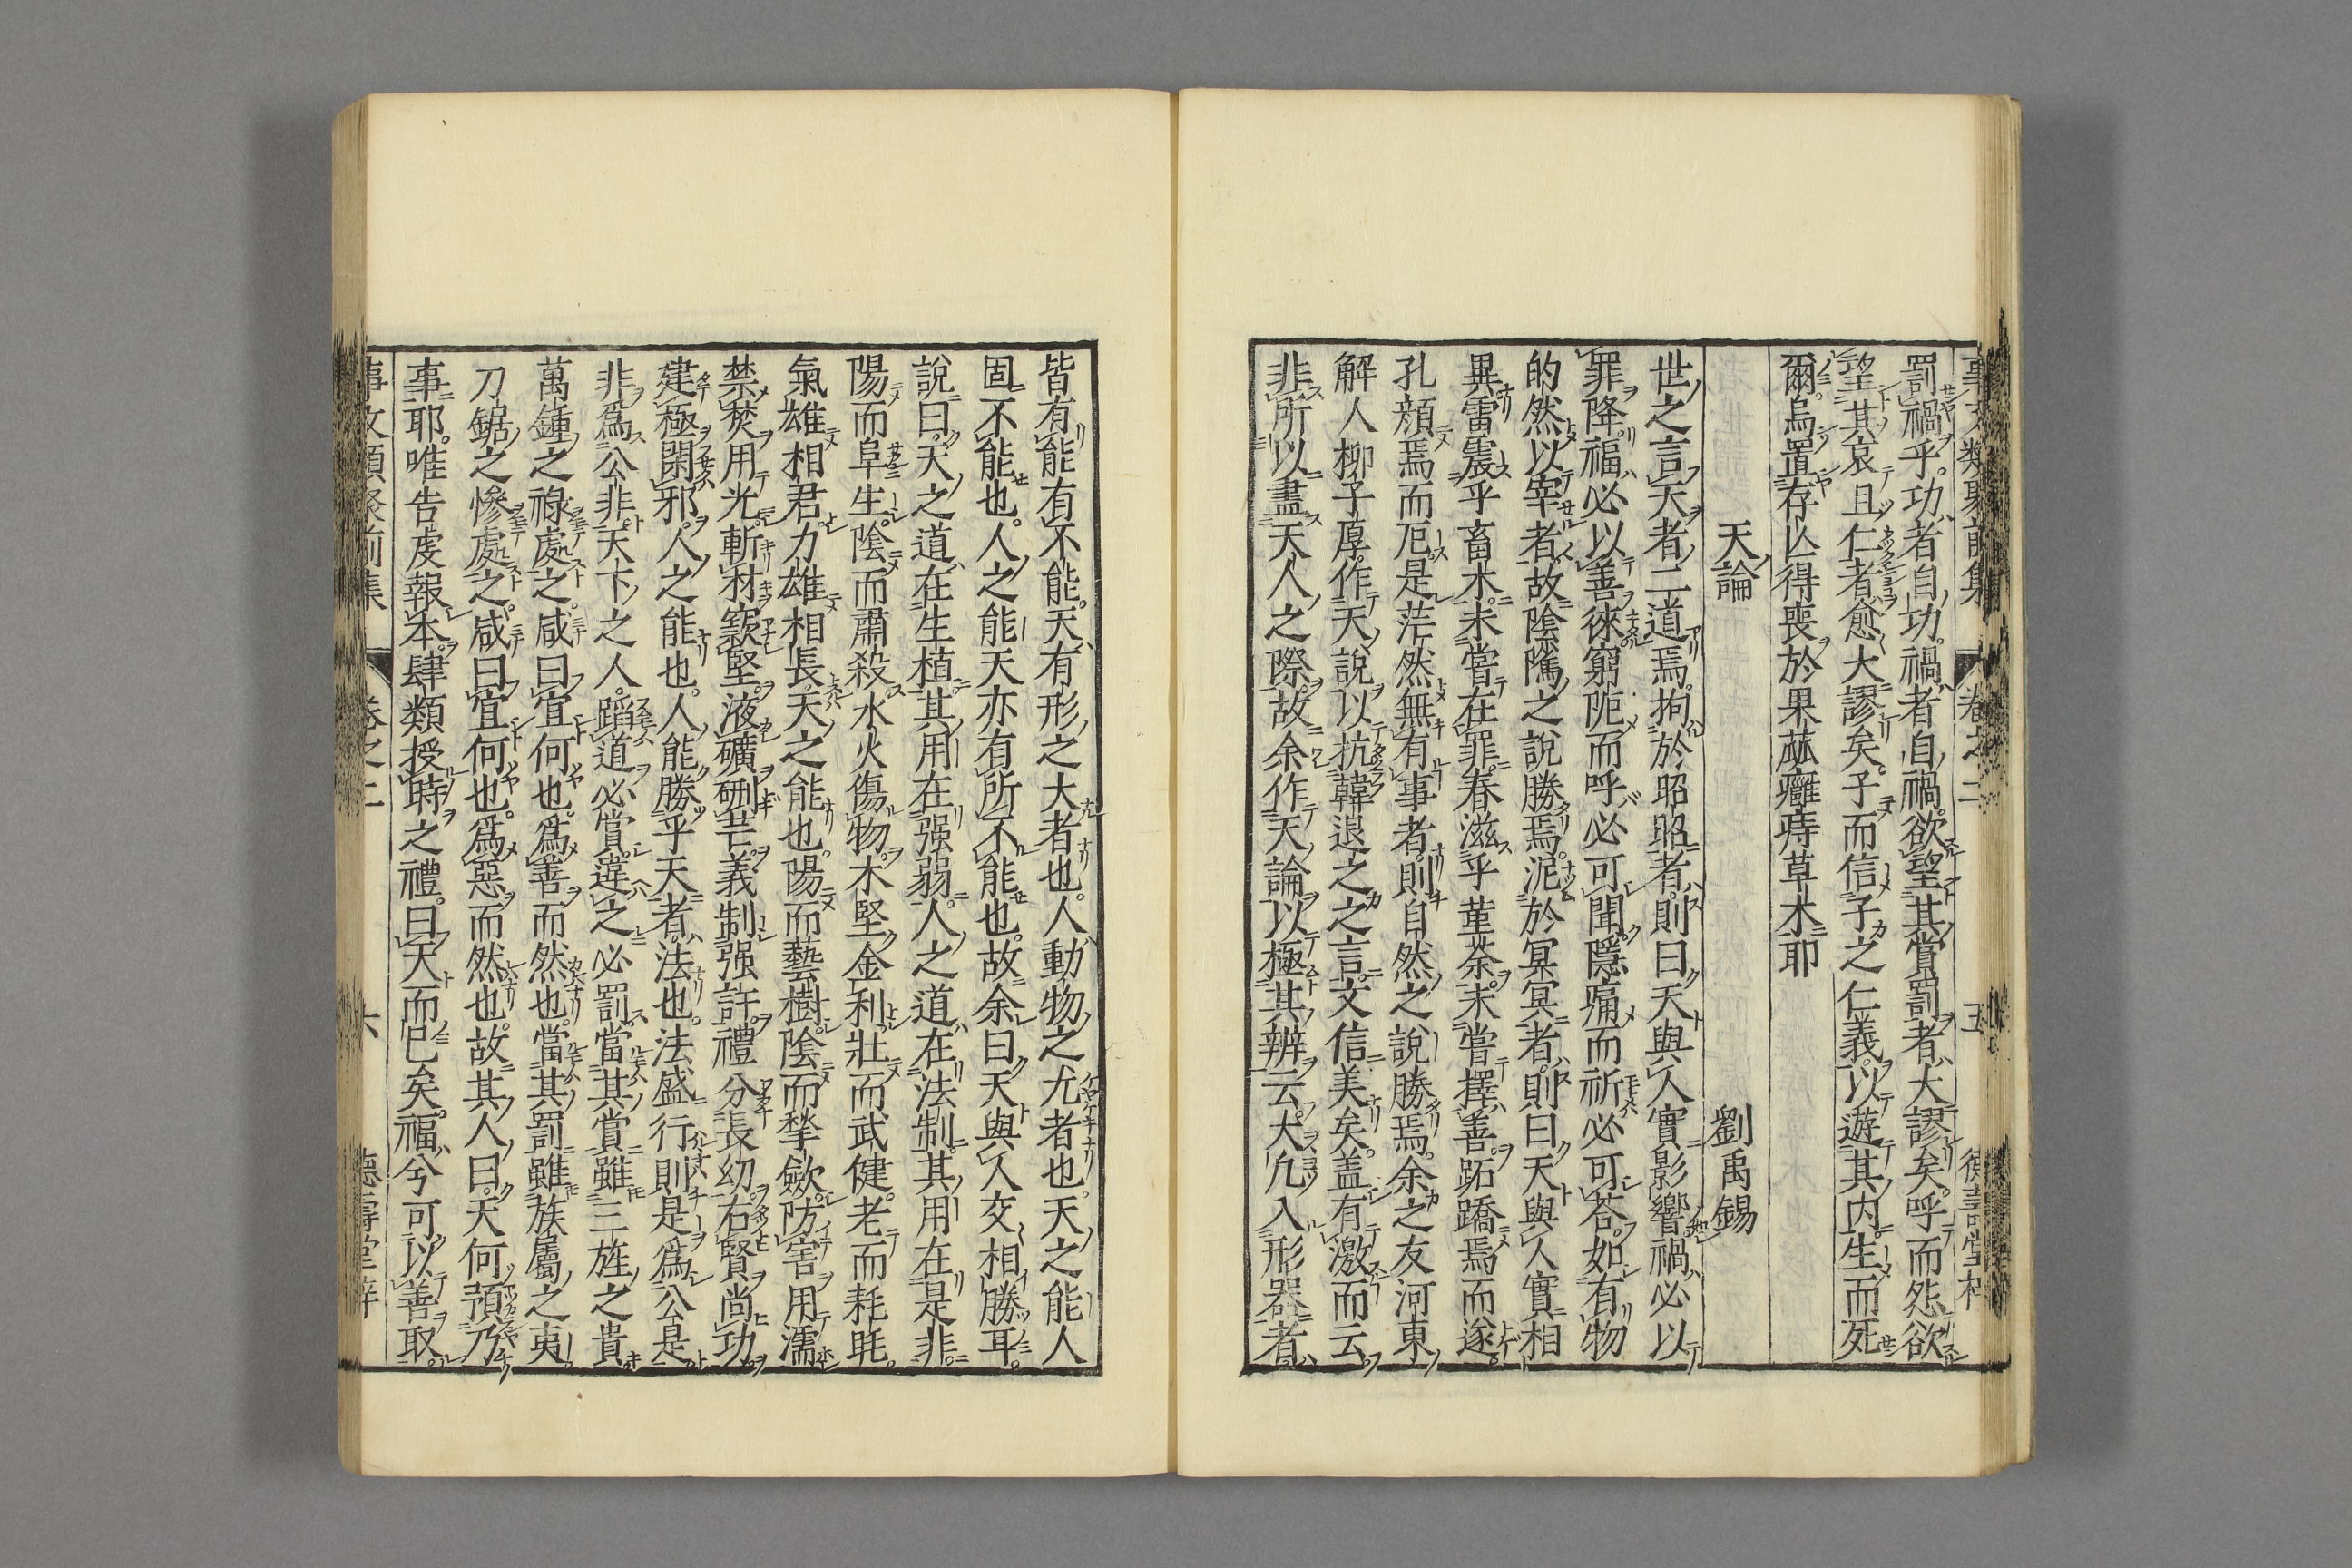 事文類聚前集 卷之二 五 德壽堂梓
罰禍乎。功者自功。禍者自禍。欲望其賞罰者大謬矣。呼而怨欲
望其哀且仁者愈大謬矣。子而信子之仁義以遊其內生而死
爾。烏置存亾得喪於果蓏癰痔草木耶
天論 劉禹錫
世之言天者二道焉。拘於昭昭者。則曰天與人實影響禍必以
罪降。福必以善徠。窮阨而呼必可聞。隱痛而祈必可荅。如有物
的然以宰者。故陰隲之說勝焉。泥於冥冥者。則曰天與人實相
異。雷震乎畜木。未嘗在罪。春滋乎菫荼。未嘗擇善。跖蹻焉而遂。
孔顔焉而厄。是茫然無有事者。則自然之說勝焉。余之友河東
解人柳子厚。作天說以抗韓退之之言。文信美矣。盖有激而云
非所以盡天人之際。故余作天論以極其辨云。大凢入形器者。
皆有能有不能。天有形之大者也。人動物之尤者也。天之能人
固不能也。人之能天亦有所不能也。故余曰天與人交相勝耳。
說曰。天之道在生植。其用在强弱。人之道在法制。其用在是非。
陽而阜生。陰而肅殺。水火傷物。木堅金利。壯而武健。老而耗眊。
氣雄相君。力雄相長。天之能也。陽而藝樹。陰而揫歛。防害用濡
禁焚用光。斬材窽堅。液礦硎芒。義制强訐。禮分長幼。右賢尚功。
建極閑邪。人之能也。人能勝乎天者。法也。法盛行則是爲公是
非爲公非。天下之人。蹈道必賞。違之必罰。當其賞雖三旌之貴。
萬鍾之祿。處之咸曰宜。何也。爲善而然也。當其罰雖族屬之夷。
刀鋸之慘。處之。咸曰宜。何也。爲惡而然也。故其人曰。天何預乃
事耶。唯告虔報本。肆類授時之禮。曰天而已矣。福兮可以善取
事文類聚前集 卷之二 六 德壽堂梓